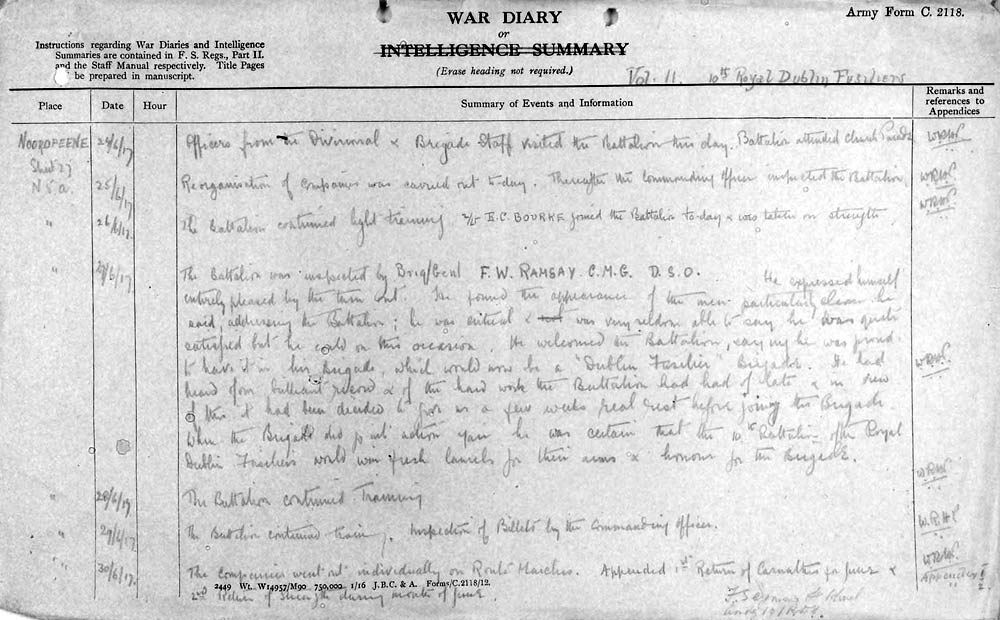 Army Form C. 2118.
WAR DIARY
or
INTELLIGENCE SUMMARY
(Erase heading not required.)
Instructions regarding War Diaries and Intelligence
Summaries are contained in F. S. Regs., Part II.
and the Staff Manual respectively. Title Pages
be prepared in manuscript.
Vol. 11. 10th Royal Dublin Fusiliers
Place Date Hour Summary of Events and Information Remarks and references to Appendices
NOORDPEENE 24/6/17 Officers from the Divisional & Brigade Staff visited the Battalion this day. Battalion attended church Parade
Sheet 27
N5a. 25/6/17 Reorganisation of Companies was carried out to-day. Thereafter the Commanding Officer inspected the Battalion.
" 26/6/17. The Battalion continued light training. 2/Lt E.C. BOURKE joined the Battalion to-day & was taken on strength
" 27/6/17. The Battalion was inspected by Brig/Genl F.W. RAMSAY C.M.G. D.S.O. He expressed himself
entirely pleased by the turn out. He found the appearance of the men particularly clean he
said, addressing the Battalion; he was critical & was very seldom able to say he was quite
satisfied but he could on this occasion. He welcomed the Battalion, saying he was proud
to have it in his Brigade, which would now be a "Dublin Fusilier" Brigade. He had
heard of our brilliant record & of the hard work the Battalion had had of late & in view
of this it had been decided to give us a few weeks real rest before joining the Brigade
When the Brigade did go into action again he was certain that the 10th Battalion of the Royal
Dublin Fusiliers would win fresh laurels for their arms & honour for the Brigade.
" 28/6/17 The Battalion continued Training
" 29/6/17 The Battalion continued training. Inspection of Billets by the Commanding Officer.
" 30/6/17. The Companies went out individually on Route Marches. Appended 1st Return of Casualties for June &
2nd Return of Strength during month of June.
Appendices 1
2
2449 Wt. W14957/M90 750,000 1/16 J.B.C. & A. Forms/C.2118/12.